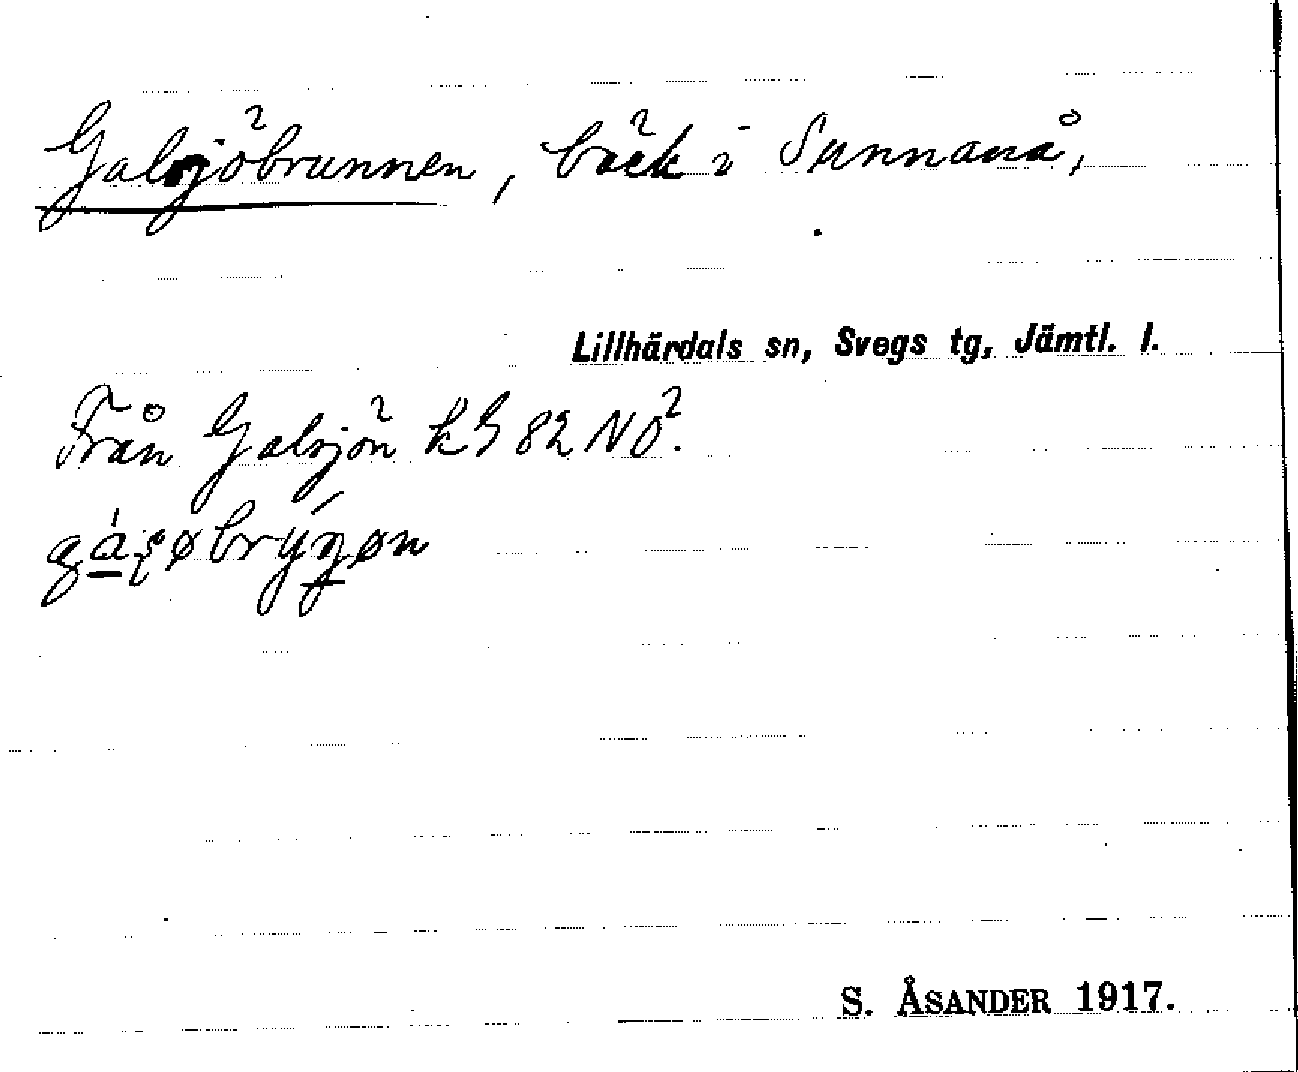 Galsjöbrunnen, bäck i Sunnanå,
Lillhärdals sn, Svegs tg, Jämtl. l.
Från Galsjön kS 82 NÖ.
S. ÅSANDER 1917.